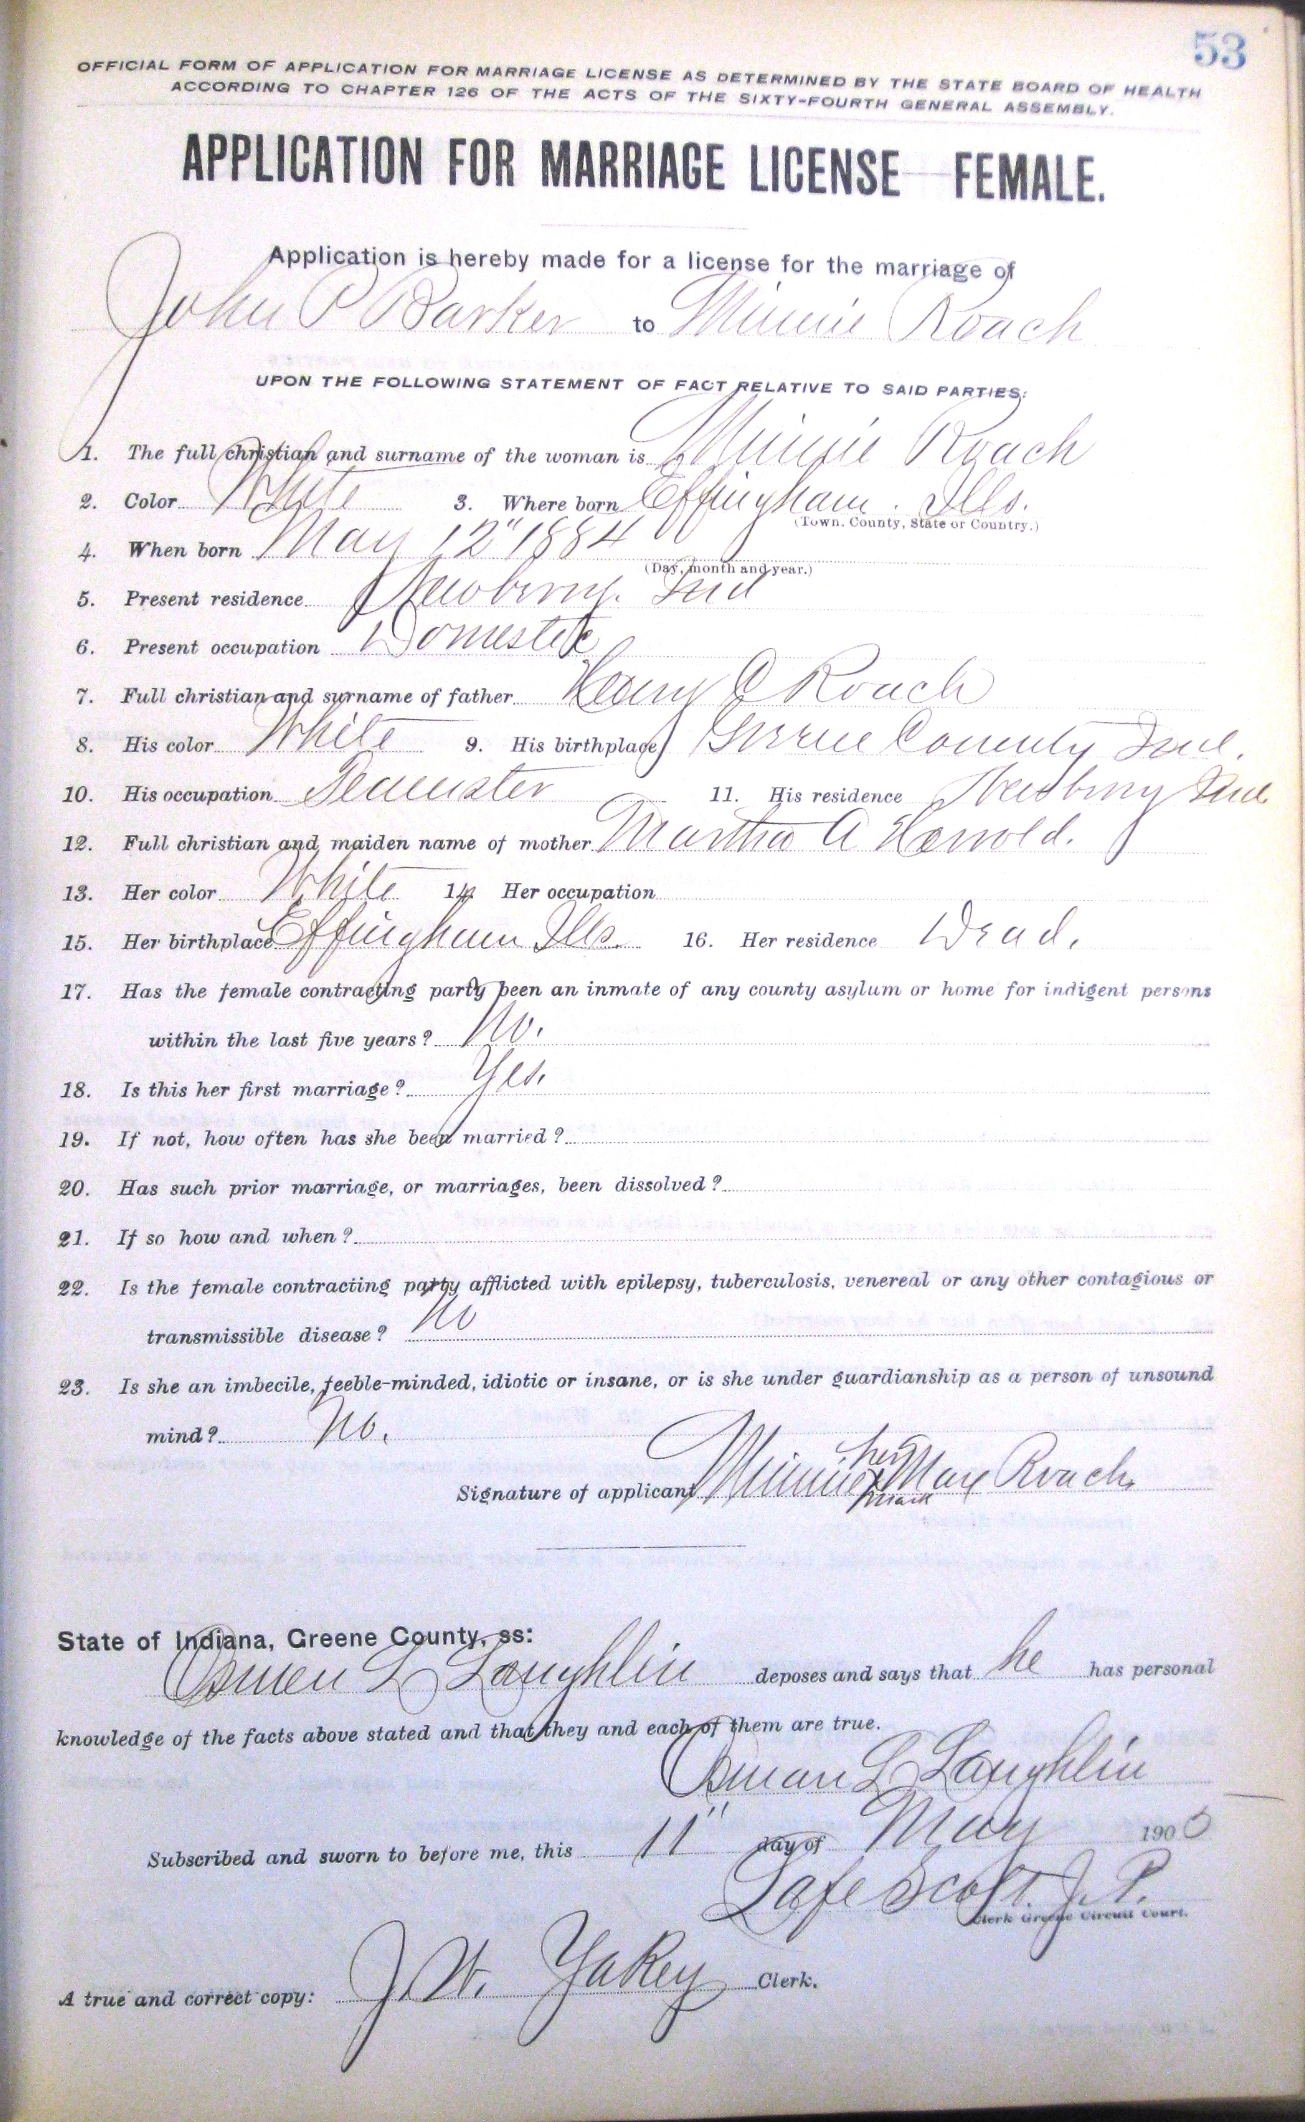 53
OFFICIAL FORM OF APPLICATION FOR MARRIAGE LICENSE AS DETERMINED BY THE STATE BOARD OF HEALTH
ACCORDING TO CHAPTER 126 OF THE ACTS OF THE SIXTY-FOURTH GENERAL ASSEMBLY.
APPLICATION FOR MARRIAGE LICENSE FEMALE.
Application is hereby made for a license for the marriage of
John P Barker to Minnie Roach
UPON THE FOLLOWING STATEMENT OF FACT RELATIVE TO SAID PARTIES:
1. The full christian and surname of the woman is Minnie Roach
2. Color White 3. Where born Effingham. Ills.
(Town. County, State or Country.)
4. When born May 12" 1884
(Day, month and year.)
5. Present residence Newberry. Ind
6. Present occupation Domestic
7. Full christian and surname of father Henry C Roach
8. His color White 9. His birthplace Greene County Ind.
10. His occupation Teamster 11. His residence Newberry Ind
12. Full christian and maiden name of mother Martha A Harrold.
13. Her color White 14. Her occupation
15. Her birthplace Effingham Ills. 16. Her residence Dead.
17. Has the female contracting party been an inmate of any county asylum or home for indigent persons
within the last five years? No.
18. Is this her first marriage? Yes.
19. If not, how often has she been married?
20. Has such prior marriage, or marriages, been dissolved?
21. If so how and when?
22. Is the female contracting party afflicted with epilepsy, tuberculosis, venereal or any other contagious or
transmissible disease? No
23. Is she an imbecile, feeble-minded, idiotic or insane, or is she under guardianship as a person of unsound
mind? No.
her
Signature of applicant Minnie x May Roach.
mark
State of Indiana, Greene County, ss:
L Laughlin deposes and says that he has personal
knowledge of the facts above stated and that they and each of them are true.
L Laughlin
Subscribed and sworn to before me, this 11" day of May 190
Lafe Scott. J. P.
Clerk Greene Circuit Court.
A true and correct copy: J. W. Yakey Clerk.